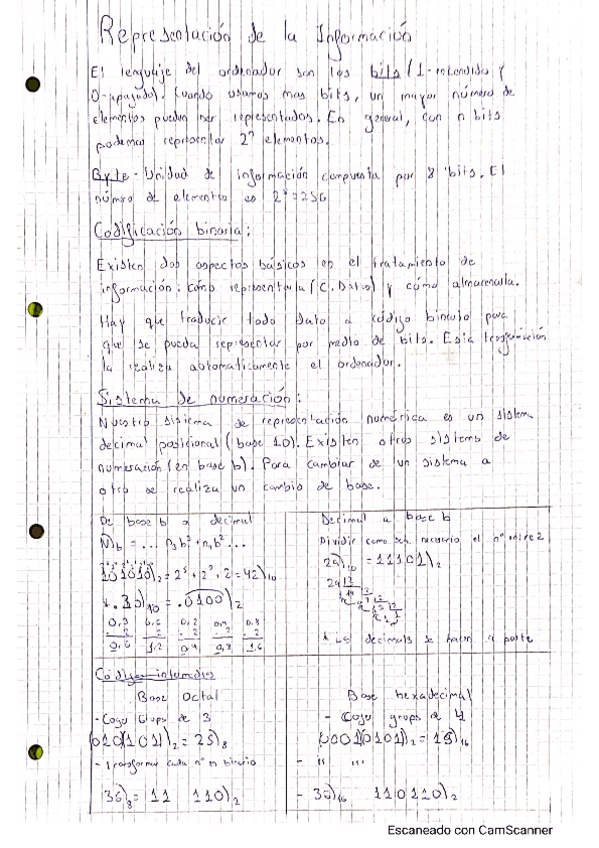 Representación de la Información
El lenguaje del ordenador son los bits (1-encendido y
0-apagado). Cuando usamos mas bits, un mayor número de
elementos pueden ser representados. En general, con n bits
podemos representar 2ⁿ elementos.
Byte - Unidad de información compuesta por 8 bits. El
número de elementos es 2⁸=256
Codificación binaria:
Existen dos aspectos básicos en el tratamiento de
información: cómo representarla (C. Datos) y cómo almacenarla.
Hay que traducir todo dato a código binario para
que se pueda representar por medio de bits. Esta
la realiza automáticamente el ordenador.
Sistema de numeración:
Nuestro sistema de representación numérica es un sistema
decimal posicional (base 10). Existen otros sistems de
numeración (en base b). Para cambiar de un sistema a
otro se realiza un cambio de base.
De base b a decimal
N)b = ...
101010)₂ = 2⁵ + 2³ + 2 = 42)₁₀
= .0100)₂
0,3 0,6 0,2 0,4 0,8
0,6 1,2 0,4 0,8 1,6
Decimal a base b
Dividir como sea necesario el nº entre 2
29)₁₀ = 11101)₂
* Los decimals se hacen a parte
Códigos intermedios
Base Octal
- Cojo Grups de 3
(010)(101)₂ = 25)₈
- Transformar cada nº en binario
36)₈ = 11 110)₂
Base hexadecimal
- Cojo grups de 4
(0001)(0101)₂ = 15)₁₆
- " "
- 36)₁₆ 110110)₂
Escaneado con CamScanner